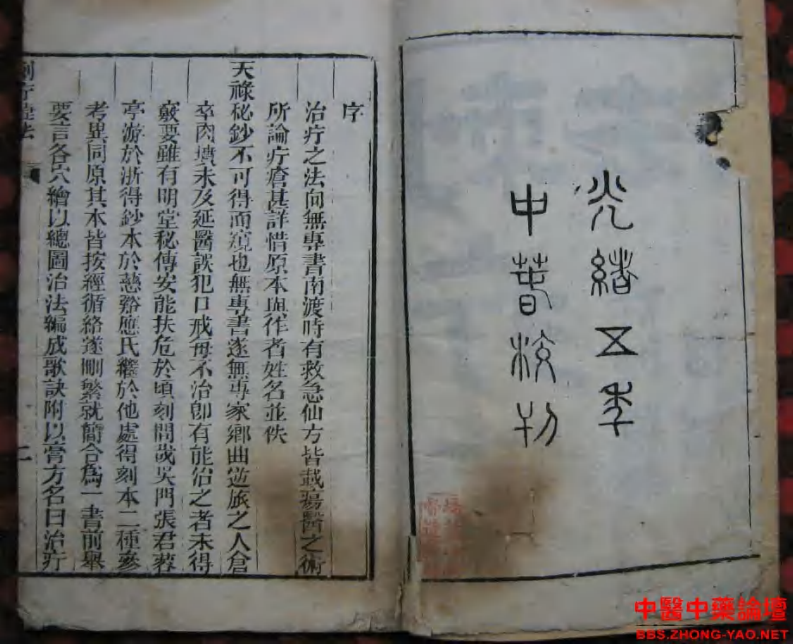 光緒五年
中春校刊
序
治疔之法向無專書南渡時有救急仙方皆載瘍醫之術
所論疔瘡甚詳惜原本與作者姓名並佚
天祿秘鈔不可得而窺也無專書遂無專家鄉曲逆旅之人倉
卒肉墳未及延醫誤犯口戒毋不治卽有能治之者未得
竅要雖有明堂秘傳安能扶危於頃刻間哉吳門張君蓉
亭游於浙得鈔本於慈谿應氏繼於他處得刻本二種參
考異同原其本皆按經循絡遂刪繁就簡合爲一書前舉
要言各穴繪以總圖治法編成歌訣附以膏方名曰治疔
刺疔捷法
中醫中藥論壇
BBS.ZHONG-YAO.NET